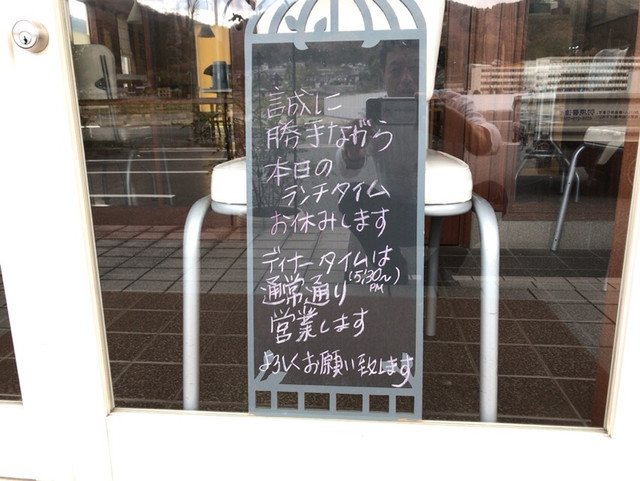 誠に
勝手ながら
本日の
ランチタイム
お休みします
ディナータイムは
通常通り(5:30〜)
PM
営業します
よろしくお願い致します